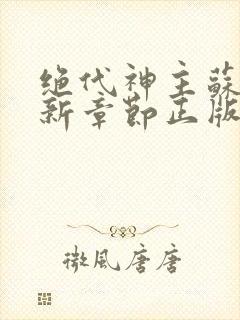 绝代神主蘇
新章節正版
微風唐唐